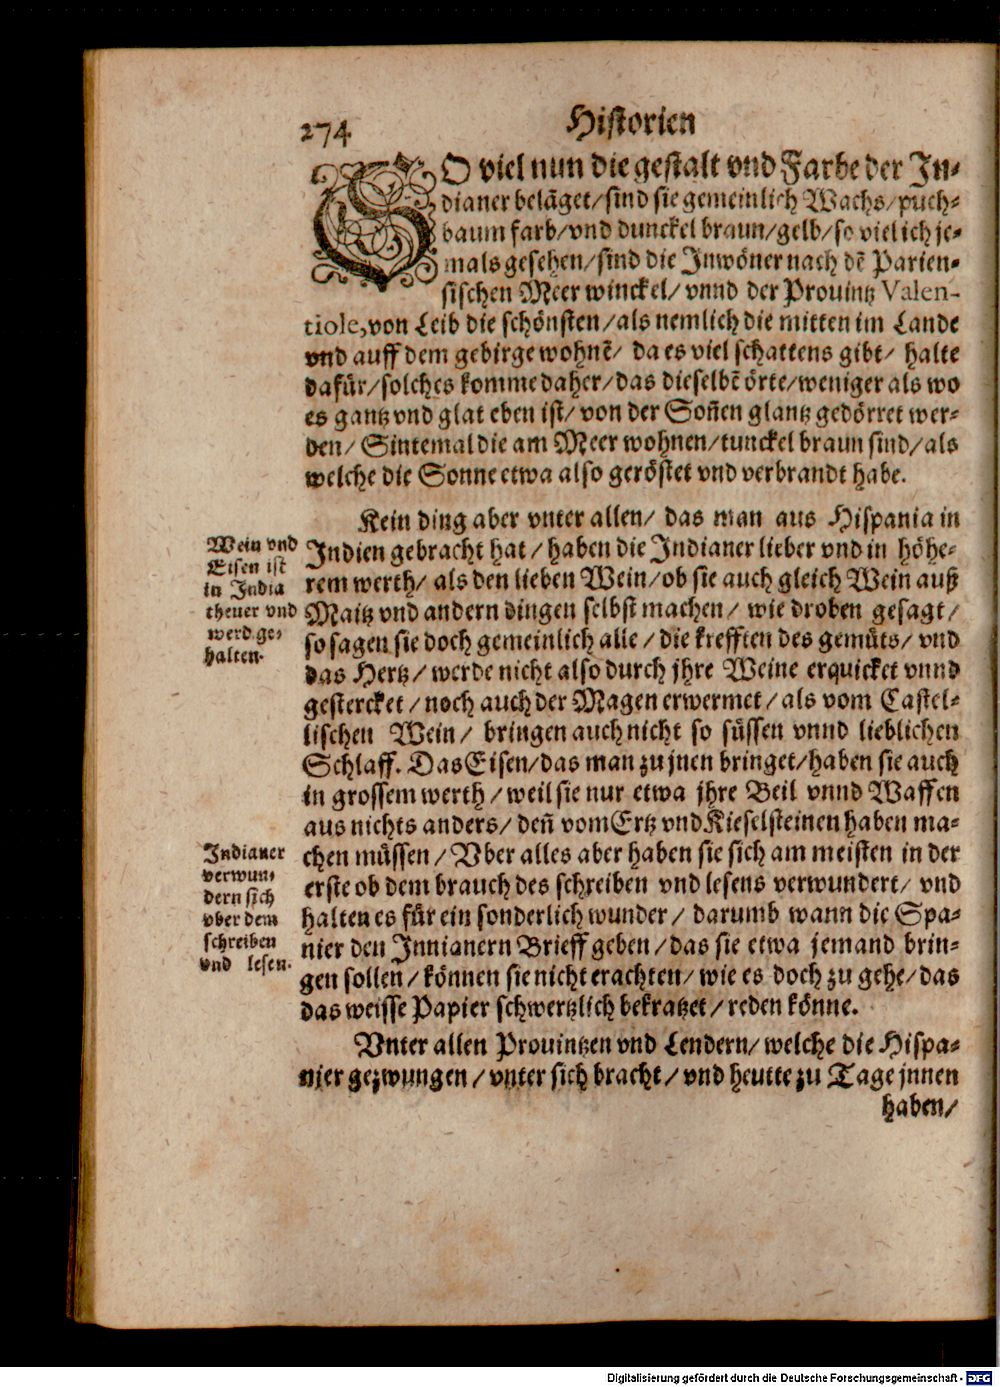 274
Historien
SO viel nun die gestalt vnd Farbe der In-
dianer belãget/sind sie gemeinlich Wachs/puch-
baum farb/vnd dunckel braun/gelb/so viel ich je-
mals gesehen/sind die Inwöner nach dẽ Parien-
sischen Meer winckel/vnnd der Prouintz Valen-
tiole, von Leib die schönsten/als nemlich die mitten im Lande
vnd auff dem gebirge wohnẽ/ da es viel schattens gibt/ halte
dafür/solches komme daher/das dieselbẽ örte/weniger als wo
es gantz vnd glat eben ist/ von der Soñen glantz gedörret wer-
den/ Sintemal die am Meer wohnen/tunckel braun sind/als
welche die Sonne etwa also geröstet vnd verbrandt habe.
Kein ding aber vnter allen/ das man aus Hispania in
Indien gebracht hat/haben die Indianer lieber vnd in höhe-
rem werth/ als den lieben Wein/ob sie auch gleich Wein auß
Maitz vnd andern dingen selbst machen/ wie droben gesagt/
so sagen sie doch gemeinlich alle/die krefften des gemüts/ vnd
das Hertz/werde nicht also durch jhre Weine erquicket vnnd
gestercket/noch auch der Magen erwermet/als vom Castel-
lischen Wein/ bringen auch nicht so süssen vnnd lieblichen
Schlaff. Das Eisen/das man zu jnen bringet/haben sie auch
in grossem werth/weil sie nur etwa jhre Beil vnnd Waffen
aus nichts anders/ deñ vom Ertz vnd Kieselsteinen haben ma-
chen müssen/Vber alles aber haben sie sich am meisten in der
erste ob dem brauch des schreiben vnd lesens verwundert/ vnd
halten es für ein sonderlich wunder/ darumb wann die Spa-
nier den Innianern Brieff geben/das sie etwa jemand brin-
gen sollen/können sie nicht erachten/wie es doch zu gehe/das
das weisse Papier schwertzlich bekratzet/reden könne.
Vnter allen Prouintzen vnd Lendern/welche die Hispa-
nier gezwungen/vnter sich bracht/vnd heutte zu Tage jnnen
haben/
Wein vnd
Eisen ist
in India
theuer vnd
werd ge-
halten.
Indianer
verwun-
dern sich
vber dem
schreiben
vnd lesen.
Digitalisierung gefördert durch die Deutsche Forschungsgemeinschaft - DFG